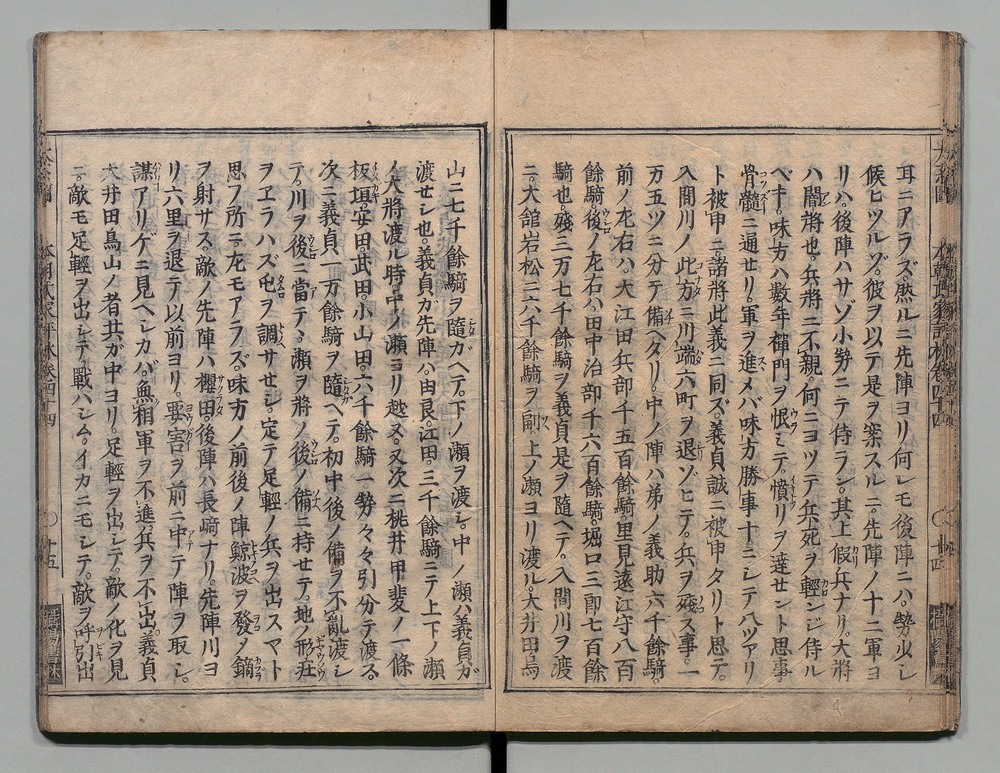 耳ニアラズ。然ルニ先陣ヨリ何レモ後陣ニハ。勢少シ
候ヒツルゾ。彼ヲ以テ是ヲ案スルニ。先陣ノ十二軍ヨ
リハ。後陣ハサゾ小勢ニテ侍ラン。其上假兵ナリ。大將
ハ闇將也。兵將ニ不親。何ニヨツテ兵死ヲ輕ンジ侍ル
ベキ。味方ハ数年禪門ヲ恨ミテ。憤リヲ達セント思事
骨髓ニ通セリ。軍ヲ進メバ味方勝事十ニシテ八ツアリ
ト被申ニ諸將此義ニ同ズ。義貞誠ニ被申タリト思テ。
入間川ノ此方ニ川端六町ヲ退ゾヒテ。兵ヲ殘ス事。一
万五ツニ分テ備ヘタリ。中ノ陣ハ弟ノ義助六千餘騎。
前ノ左右ハ。大江田兵部千五百餘騎里見遠江守八百
餘騎後ノ左右ハ。田中治部千六百餘騎。堀口三郎七百餘
騎也殘三万七千餘騎ヲ義貞是ヲ隨ヘテ。入間川ヲ渡
ニ。大舘岩松ニ六千餘騎ヲ副上ノ瀬ヨリ渡ル。大井田鳥
山ニ七千餘騎ヲ隨ガヘテ。下ノ瀬ヲ渡シ。中ノ瀬ハ義貞ガ
渡セシ也。義貞ガ先陣ハ。由良。江田。三千餘騎ニテ上下ノ瀬
ノ大將渡ル時中ノ瀬ヨリ越ス。又次ニ桃井甲斐ノ一條
板垣。安田武田。小山田。六千餘騎一勢々々引分テ渡ス。
次ニ義貞一万餘騎ヲ隨ヘテ。初中後ノ備ヲ不亂渡シ
テ。川ヲ後ニ當テ。瀬ヲ將ノ後ノ備ニ持セテ。地ノ形莊
ヲヱラハズ屯ヲ調サセシ。定テ足輕ノ兵ヲ出スマト
思フ所ニ左モアラズ。味方ノ前後ノ陣鯨波ヲ發ノ鏑
ヲ射サス。敵ノ先陣ハ櫻田後陣ハ長﨑ナリ。先陣川ヨ
リ六里ヲ退テ以前ヨリ。要害ヲ前ニ中テ陣ヲ取シ。
謀アリゲニ見ヘシカバ。無相軍ヲ不進。兵ヲ不出。義貞
大井田鳥山ノ者共ガ中ヨリ。足輕ヲ出シテ。敵ノ化ヲ見
ニ。敵モ足輕ヲ出シテ。戰ハシム。イカニモシテ。敵ヲ呼引出